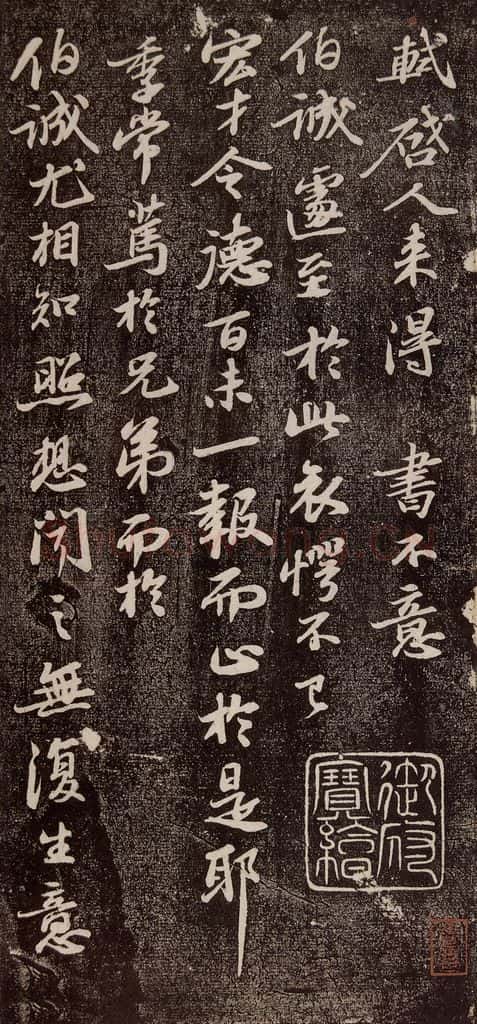 軾啓人来得 書不意
伯誠遽至於此哀愕不已
宏才令德百未一報而止於是耶
季常篤於兄弟而於
伯誠尤相知照想聞之無復生意
御府寶繪